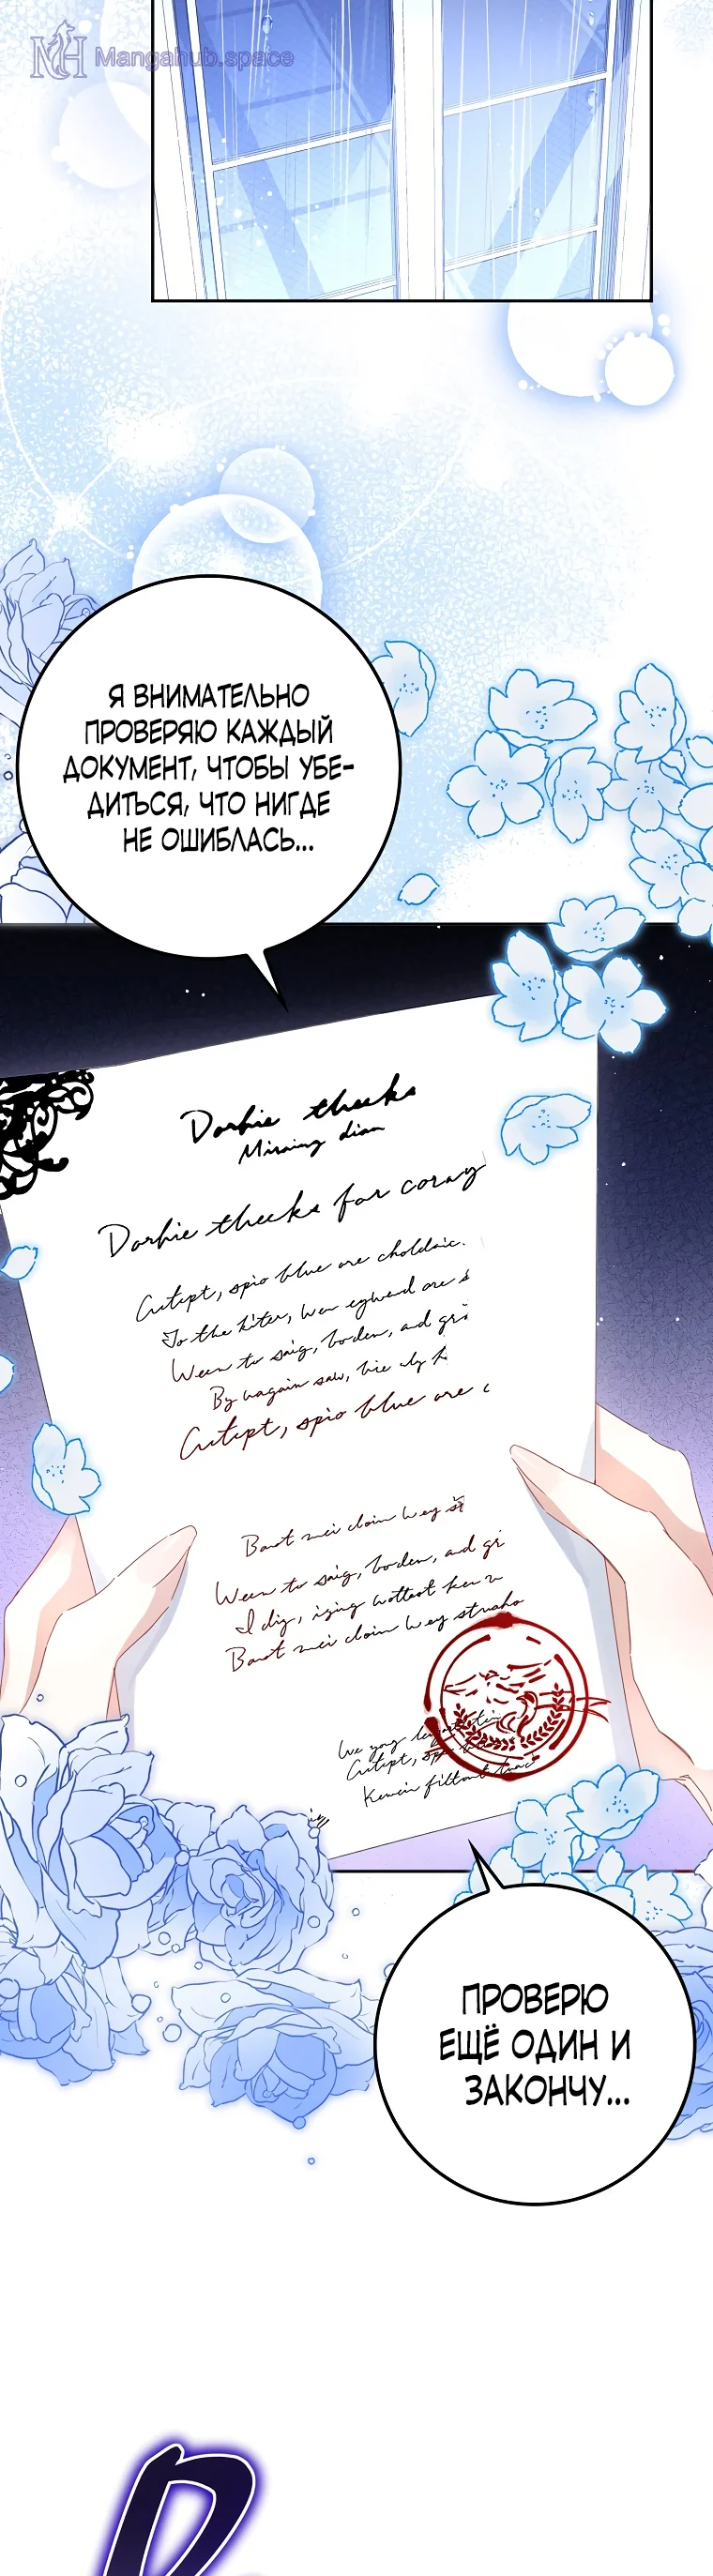 Mangahub.space
Я ВНИМАТЕЛЬНО
ПРОВЕРЯЮ КАЖДЫЙ
ДОКУМЕНТ, ЧТОБЫ УБЕ-
ДИТЬСЯ, ЧТО НИГДЕ
НЕ ОШИБЛАСЬ...
Dorhie theeks
Mirainy dian
Dorhie theeks for coray
Cutept, spio blue are choldaic.
To the kiter, wen egwend are
Ween to saig, boden, and gri
By wagain saw, bie cly
Cutept, spio blue are
Baot mei cloin wey
Ween to saig, boden, and gi
I dig, iging wotteot ken
Baot mei cloin wey struaho
ПРОВЕРЮ
ЕЩЁ ОДИН И
ЗАКОНЧУ...